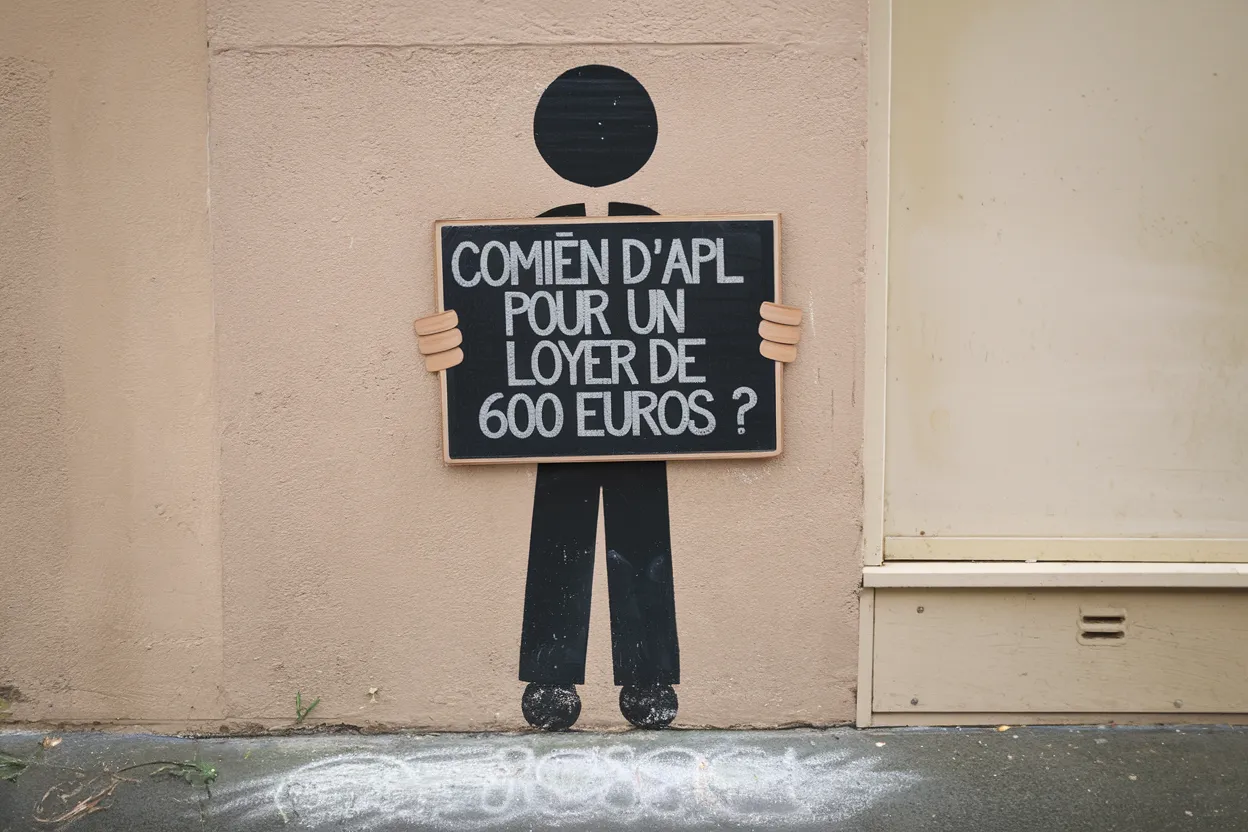 COMIĒN D'APL
POUR UN
LOYER DE
600 EUROS ?